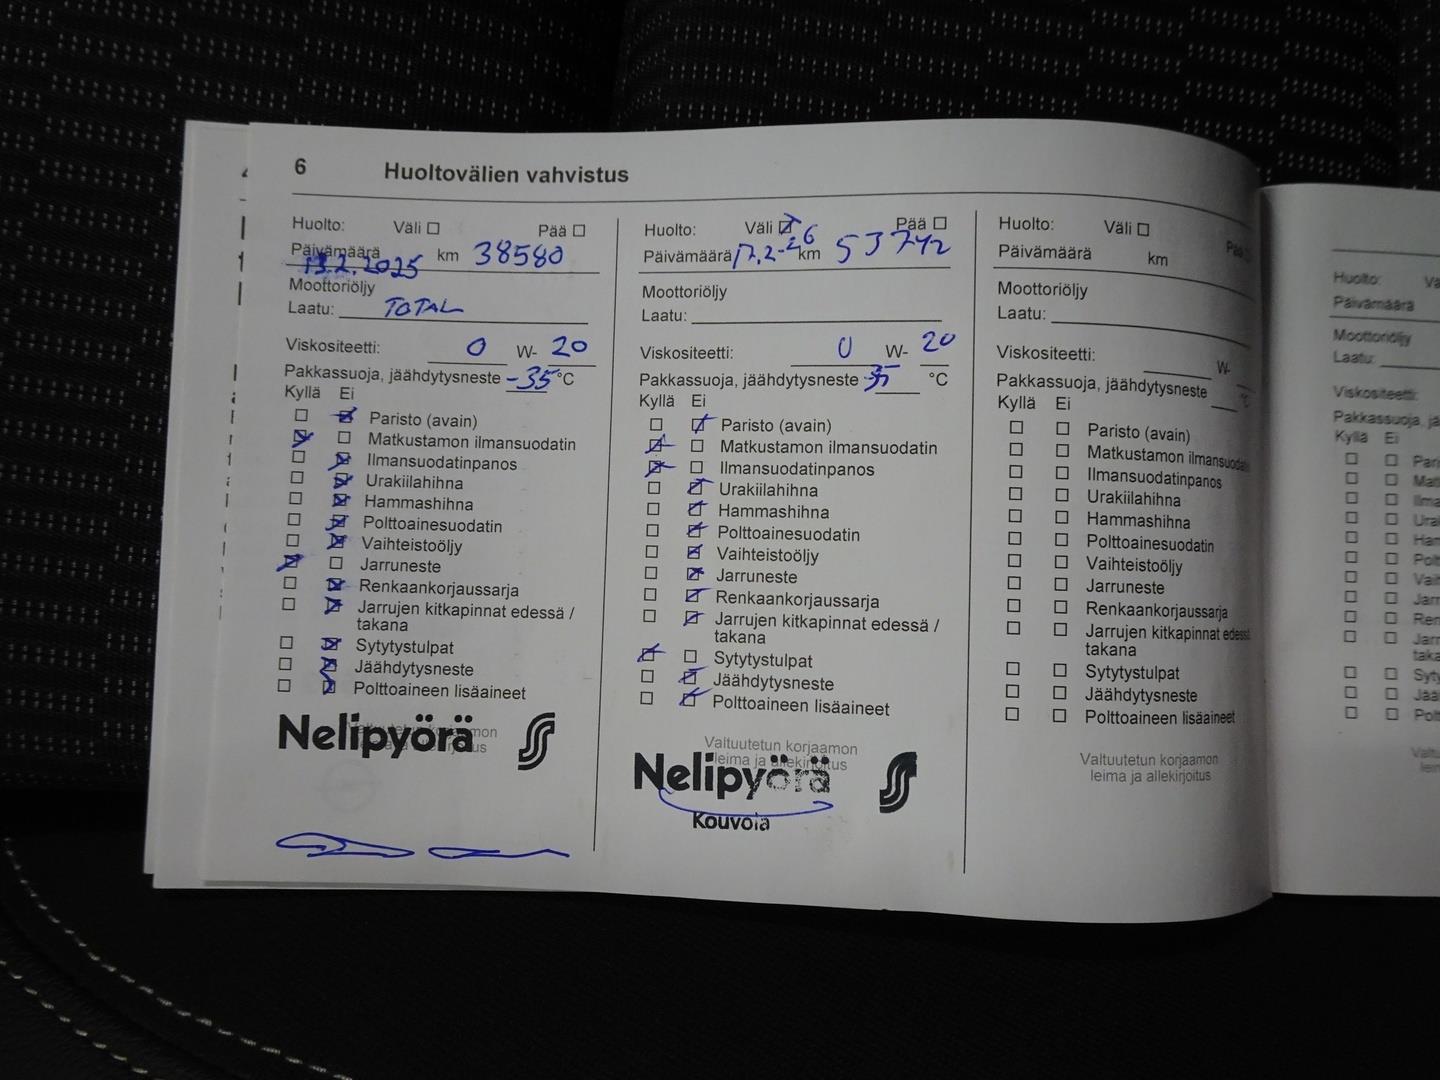 6 Huoltovälien vahvistus
Huolto: Väli Pää
Päivämäärä 13.2.2025 km 38580
Moottoriöljy
Laatu: TOTAL
Viskositeetti: 0 W- 20
Pakkassuoja, jäähdytysneste -35 °C
Kyllä Ei
Paristo (avain)
Matkustamon ilmansuodatin
Ilmansuodatinpanos
Urakiilahihna
Hammashihna
Polttoainesuodatin
Vaihteistoöljy
Jarruneste
Renkaankorjaussarja
Jarrujen kitkapinnat edessä /
takana
Sytytystulpat
Jäähdytysneste
Polttoaineen lisäaineet
Valtuutetun korjaamon
leima ja allekirjoitus
Nelipyörä
Huolto: Väli Pää
Päivämäärä 17.2-26 km 53742
Moottoriöljy
Laatu:
Viskositeetti: 0 W- 20
Pakkassuoja, jäähdytysneste 35 °C
Kyllä Ei
Paristo (avain)
Matkustamon ilmansuodatin
Ilmansuodatinpanos
Urakiilahihna
Hammashihna
Polttoainesuodatin
Vaihteistoöljy
Jarruneste
Renkaankorjaussarja
Jarrujen kitkapinnat edessä /
takana
Sytytystulpat
Jäähdytysneste
Polttoaineen lisäaineet
Valtuutetun korjaamon
leima ja allekirjoitus
Nelipyörä
Kouvola
Huolto: Väli Pää
Päivämäärä km
Moottoriöljy
Laatu:
Viskositeetti: W-
Pakkassuoja, jäähdytysneste °C
Kyllä Ei
Paristo (avain)
Matkustamon ilmansuodatin
Ilmansuodatinpanos
Urakiilahihna
Hammashihna
Polttoainesuodatin
Vaihteistoöljy
Jarruneste
Renkaankorjaussarja
Jarrujen kitkapinnat edessä
takana
Sytytystulpat
Jäähdytysneste
Polttoaineen lisäaineet
Valtuutetun korjaamon
leima ja allekirjoitus
Huolto:
Päivämäärä
Moottoriöljy
Laatu:
Viskositeetti:
Pakkassuoja,
Kyllä Ei